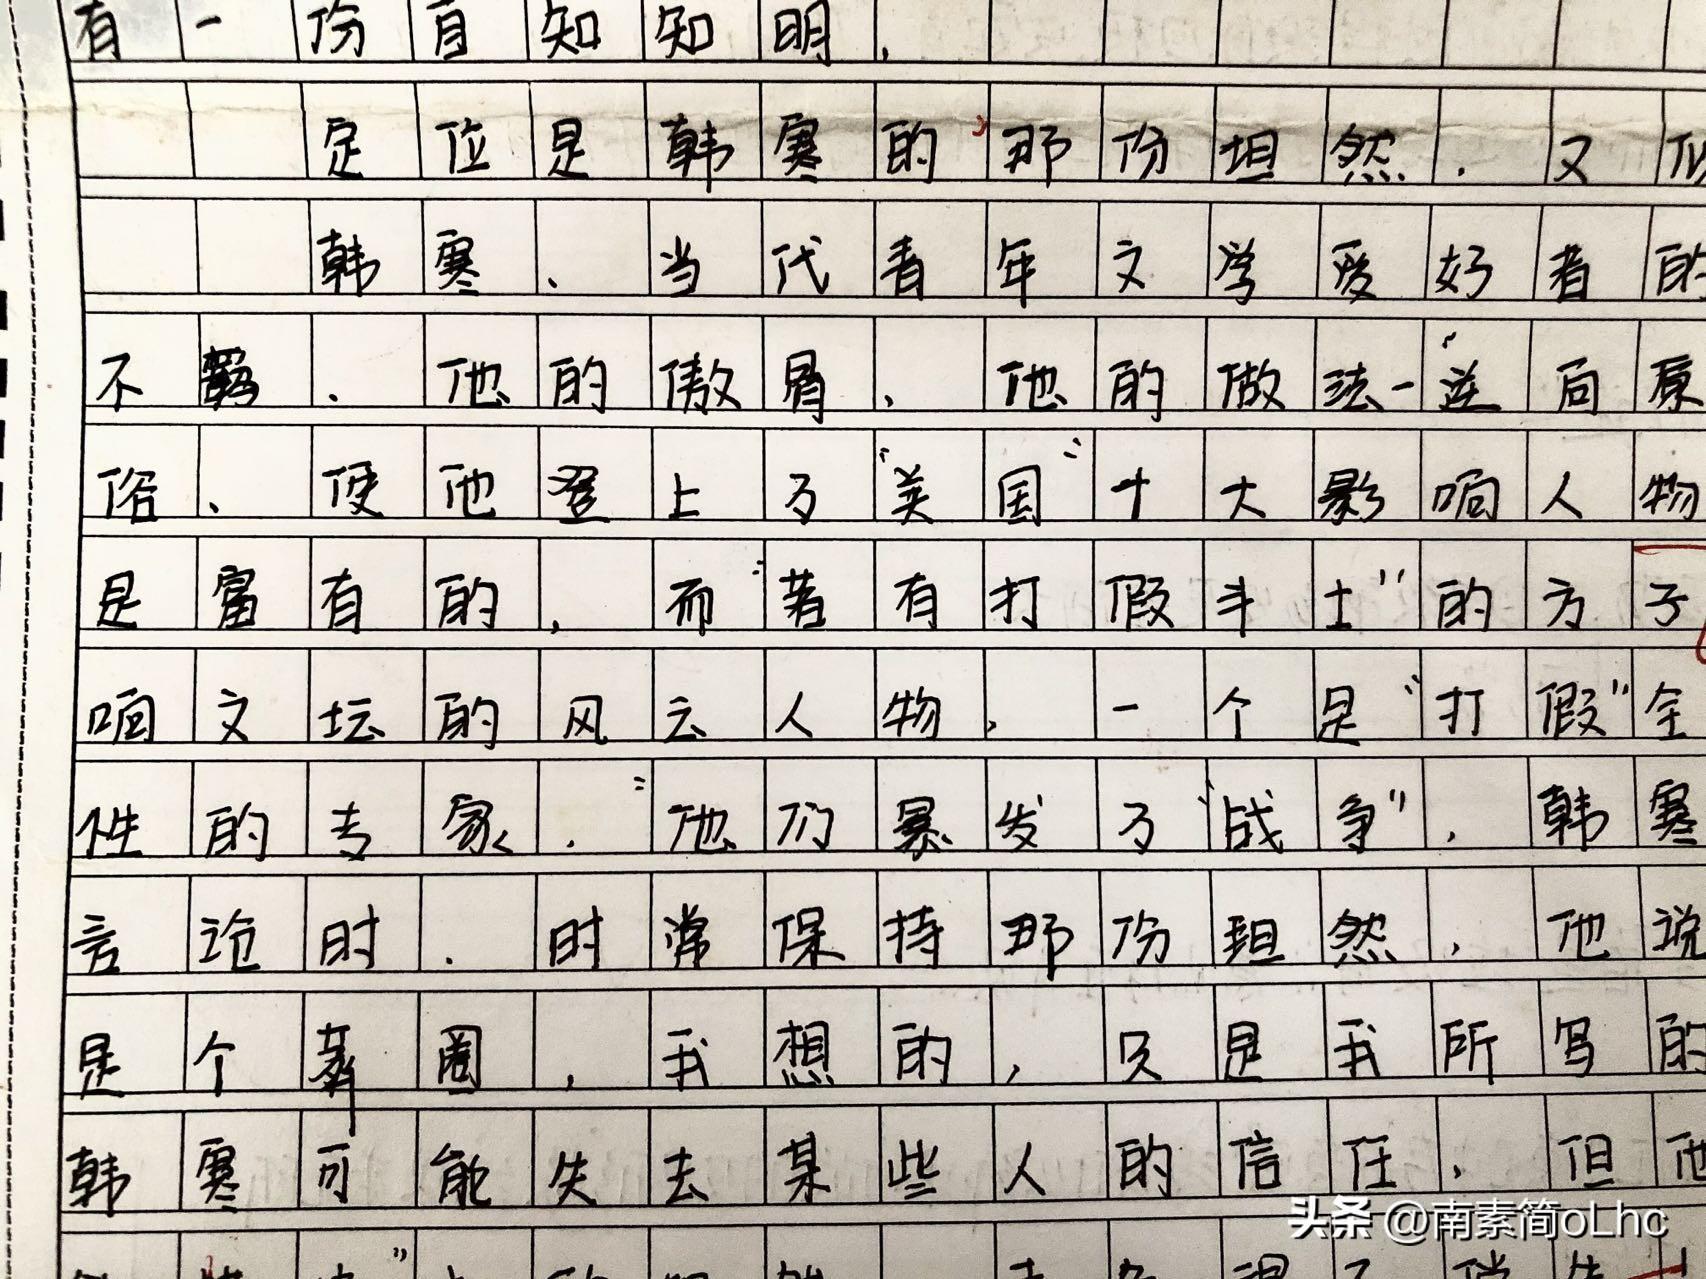 有一份自知知明，
定位是韩寒的那份坦然．又似
韩寒、当代青年文学爱好者的
不羁．他的傲骨，他的做法一迳向原
俗、使他登上了“美国”十大影响人物
是富有的，而“著有打假斗士”的方子
响文坛的风云人物，一个是“打假”全
性的专家．”他们暴发了“战争”，韩寒
言论时．时常保持那份坦然，他说
是个葬圈，我想的，只是我所写的
韩寒可能失去某些人的信任，但他
头条 @南素简oLhc